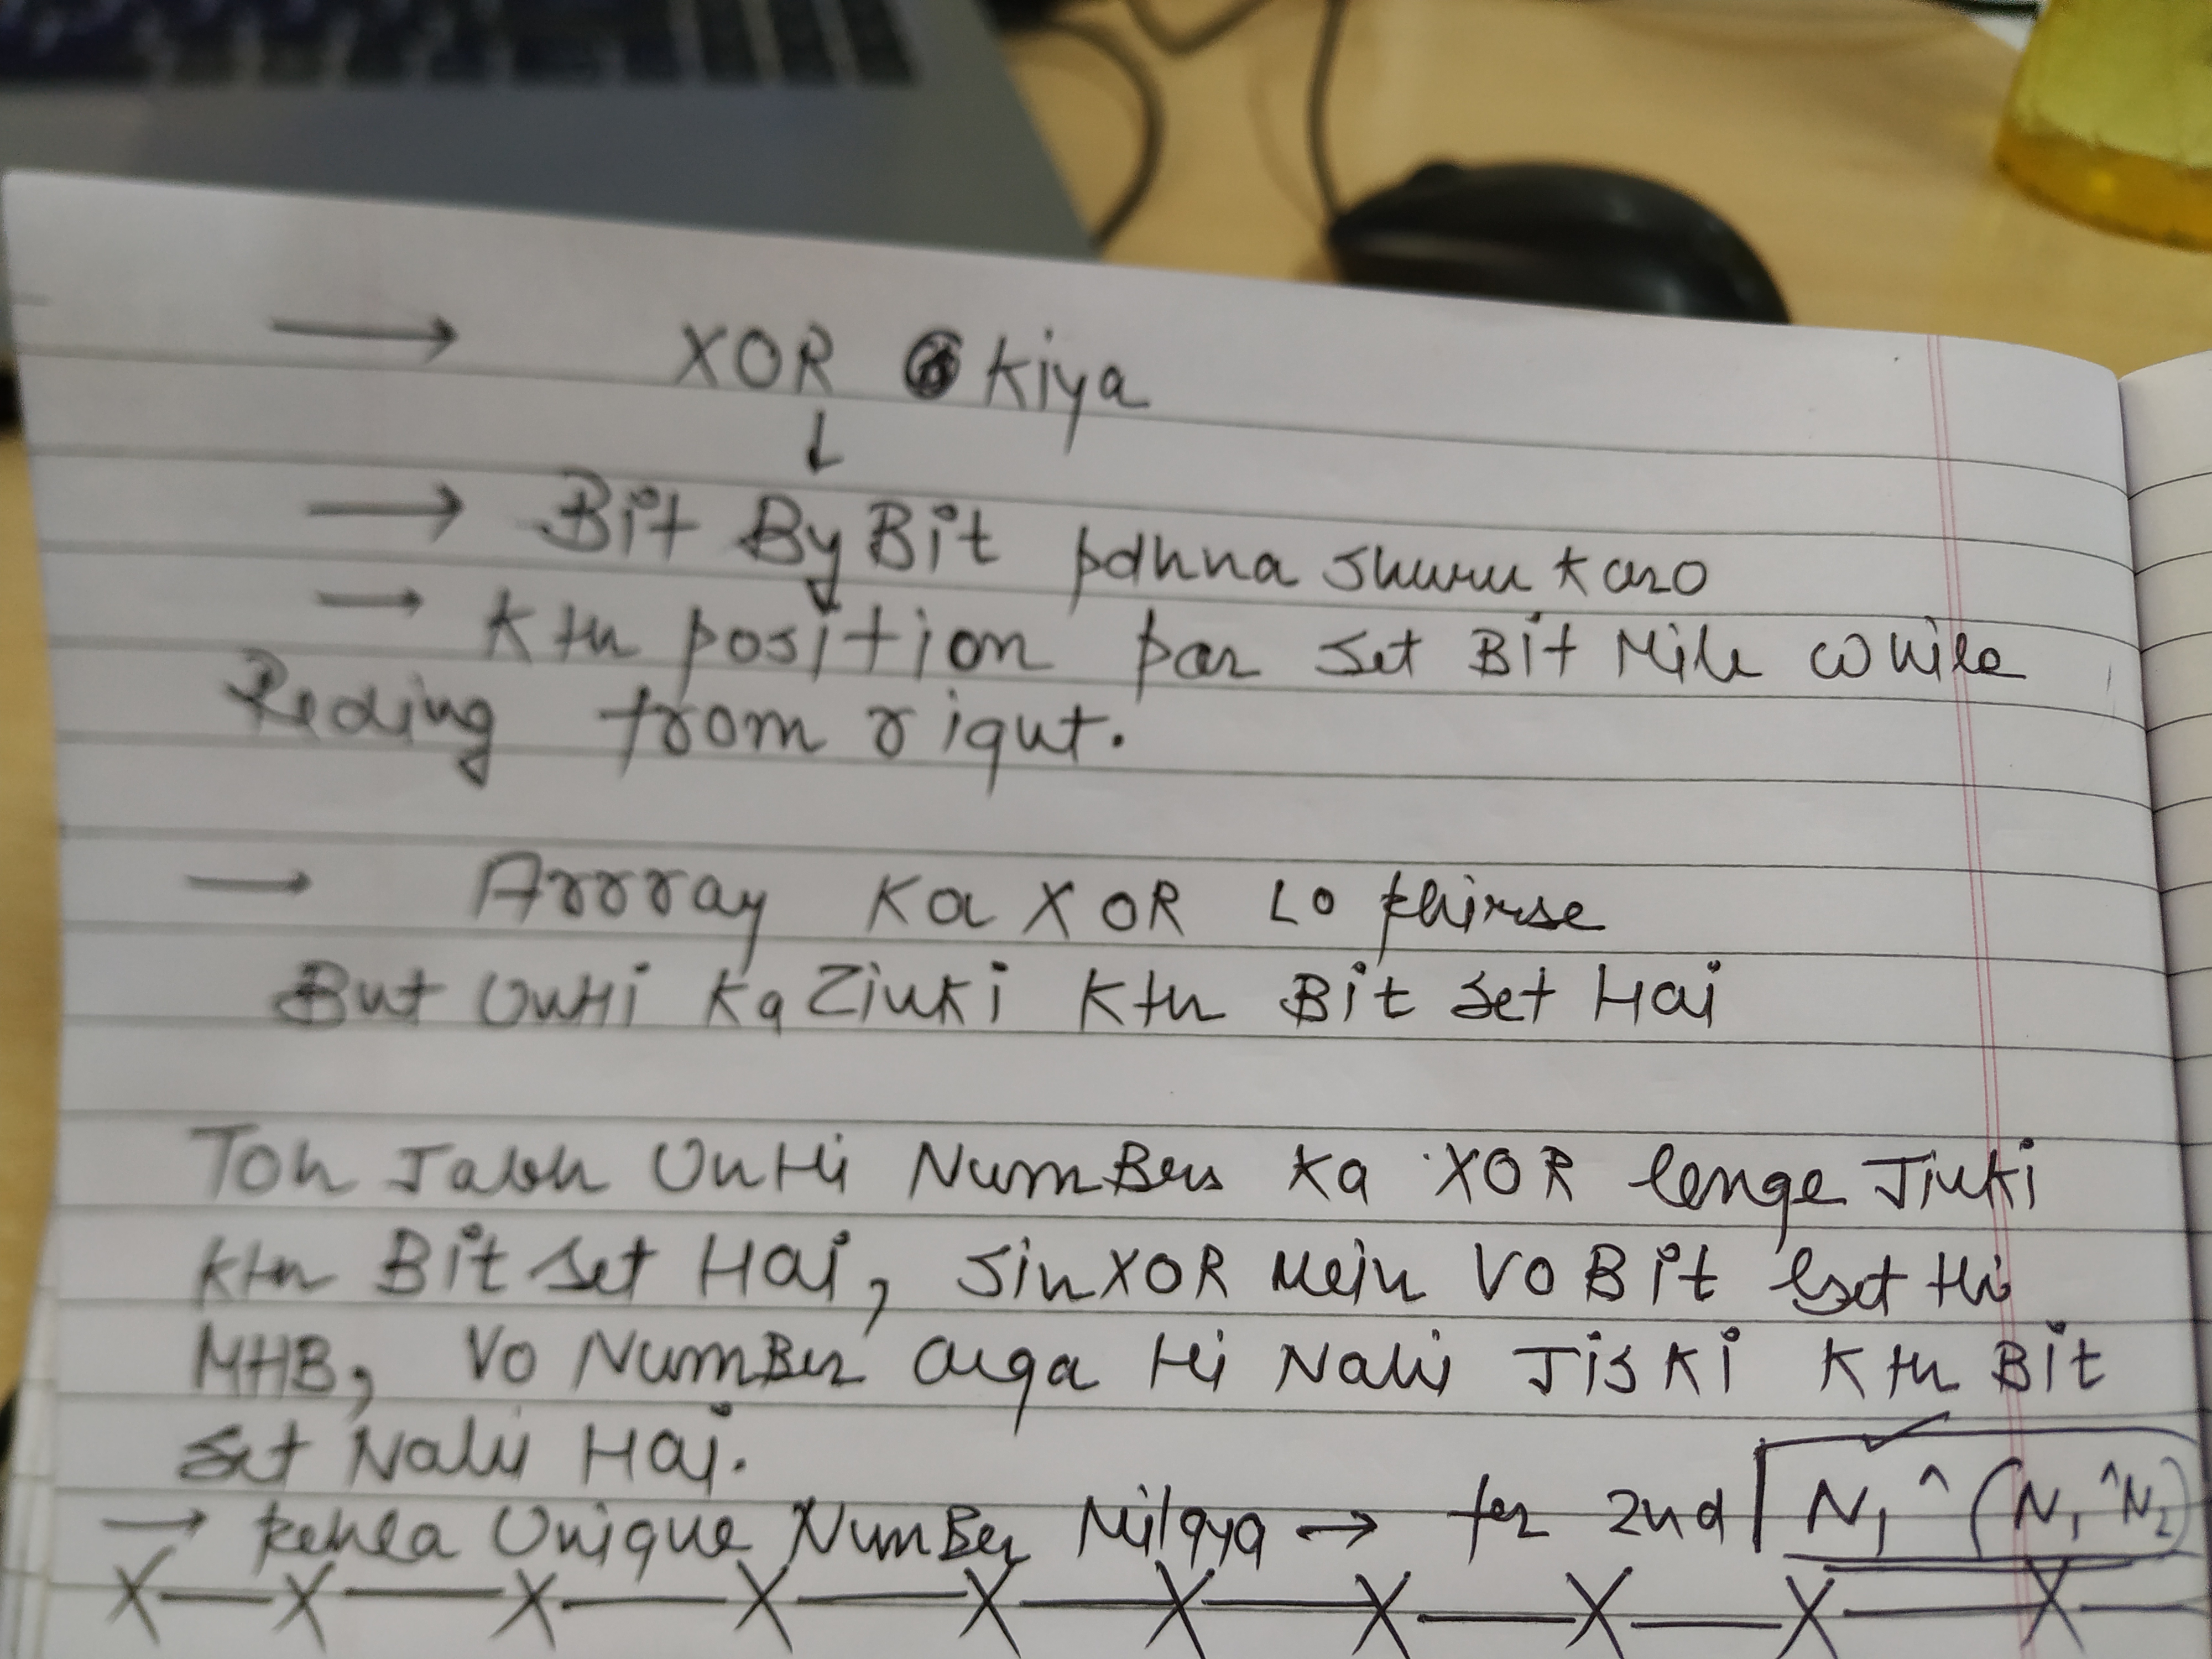 → XOR Kiya
↓
→ Bit By Bit pdhna shuru karo
→ Kth position par set Bit Mile while
Reding from right.
→ Arrray Ka XOR Lo phirse
But UnHi Ka Zinki Kth Bit set Hai
Toh Jabh UnHi NumBers Ka XOR lenge Jinki
Kth Bit set Hai, Sin XOR Mein VO Bit set Hi
VO NumBer aega Hi Nahi JisKi Kth Bit
set Nahi Hai.
→ Pehla Unique NumBer Milgya → for 2nd N₁ ^ (N₁ ^ N₂)
X — X — X — X — X — X — X — X — X — X —